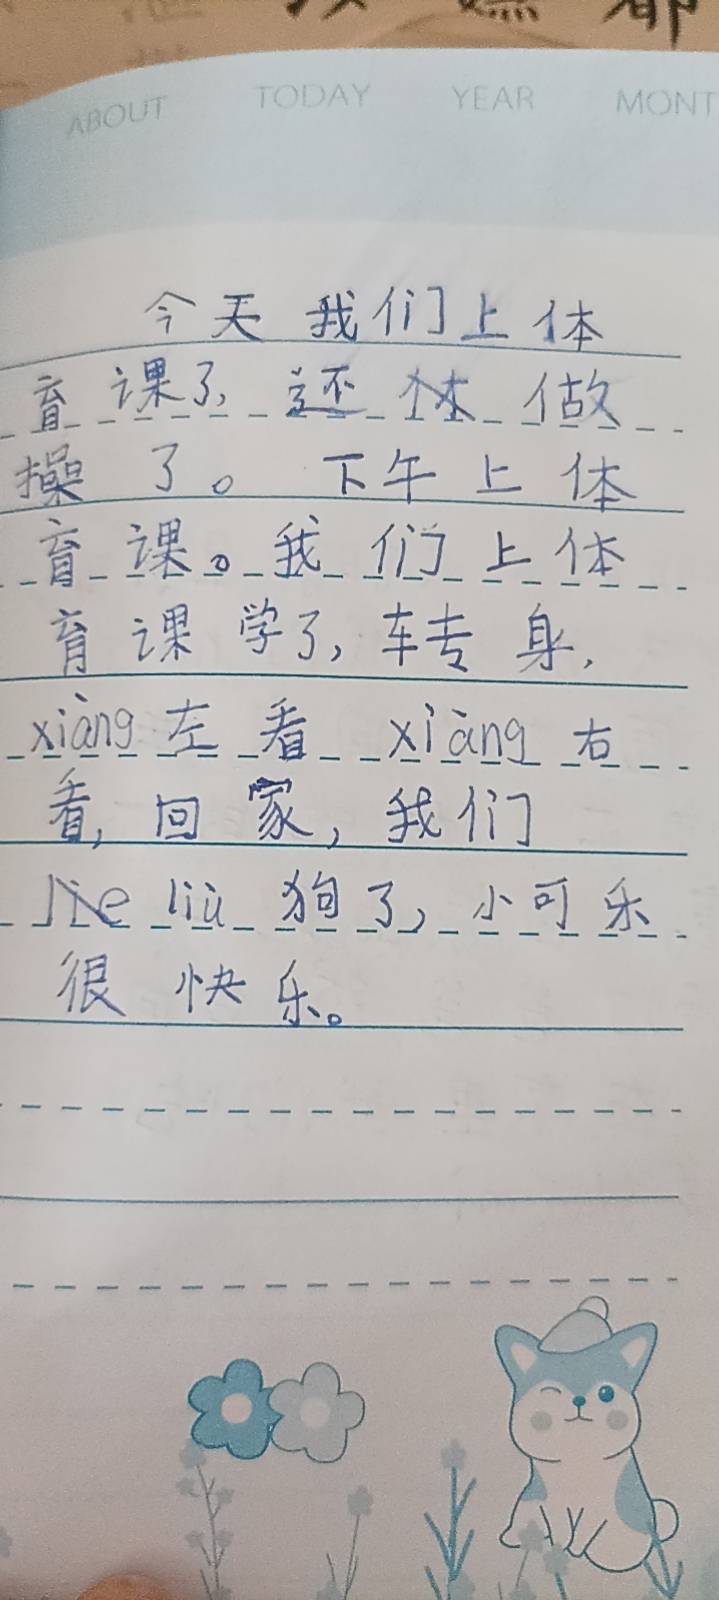 ABOUT TODAY YEAR MONT
今天我们上体
育课了,还体做
操了。下午上体
育课。我们上体
育课学了,车专身,
xiàng左看xiàng右
看,回家,我们
liù狗了,小可乐
很快乐。